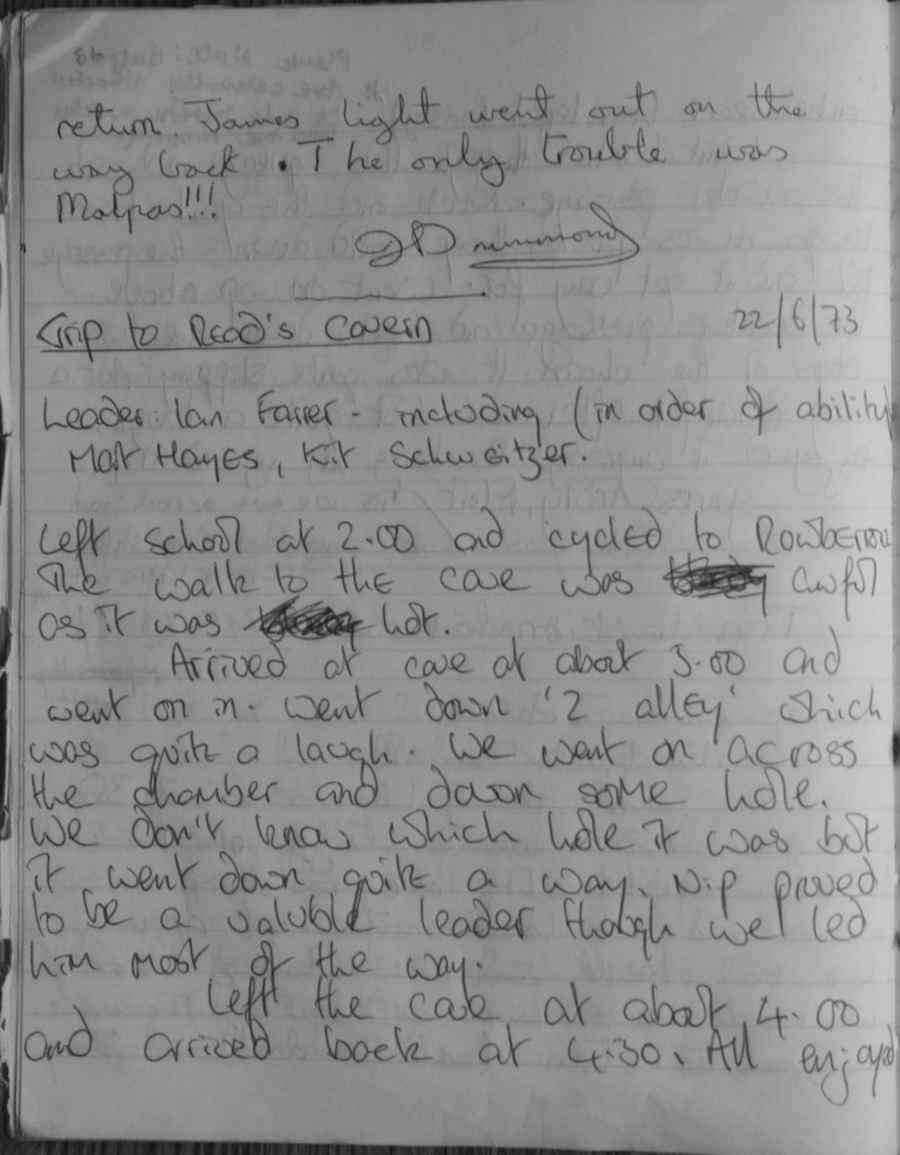 return. James light went out on the
way back. The only trouble was
Malpas!!!
JDrummond
Trip to Read's Cavern 22/6/73
Leader: Ian Farrer - including (in order of ability)
Matt Hayes, Kit Schweitzer.
Left school at 2.00 and cycled to Rowberrow
The walk to the cave was awful
as it was hot.
Arrived at cave at about 3.00 and
went on in. Went down 'Z alley' which
was quite a laugh. We went on across
the chamber and down some hole.
We don't know which hole it was but
it went down quite a way. Nip proved
to be a valuble leader though we led
him most of the way.
Left the cave at about 4.00
and arrived back at 4.30. All enjoyed